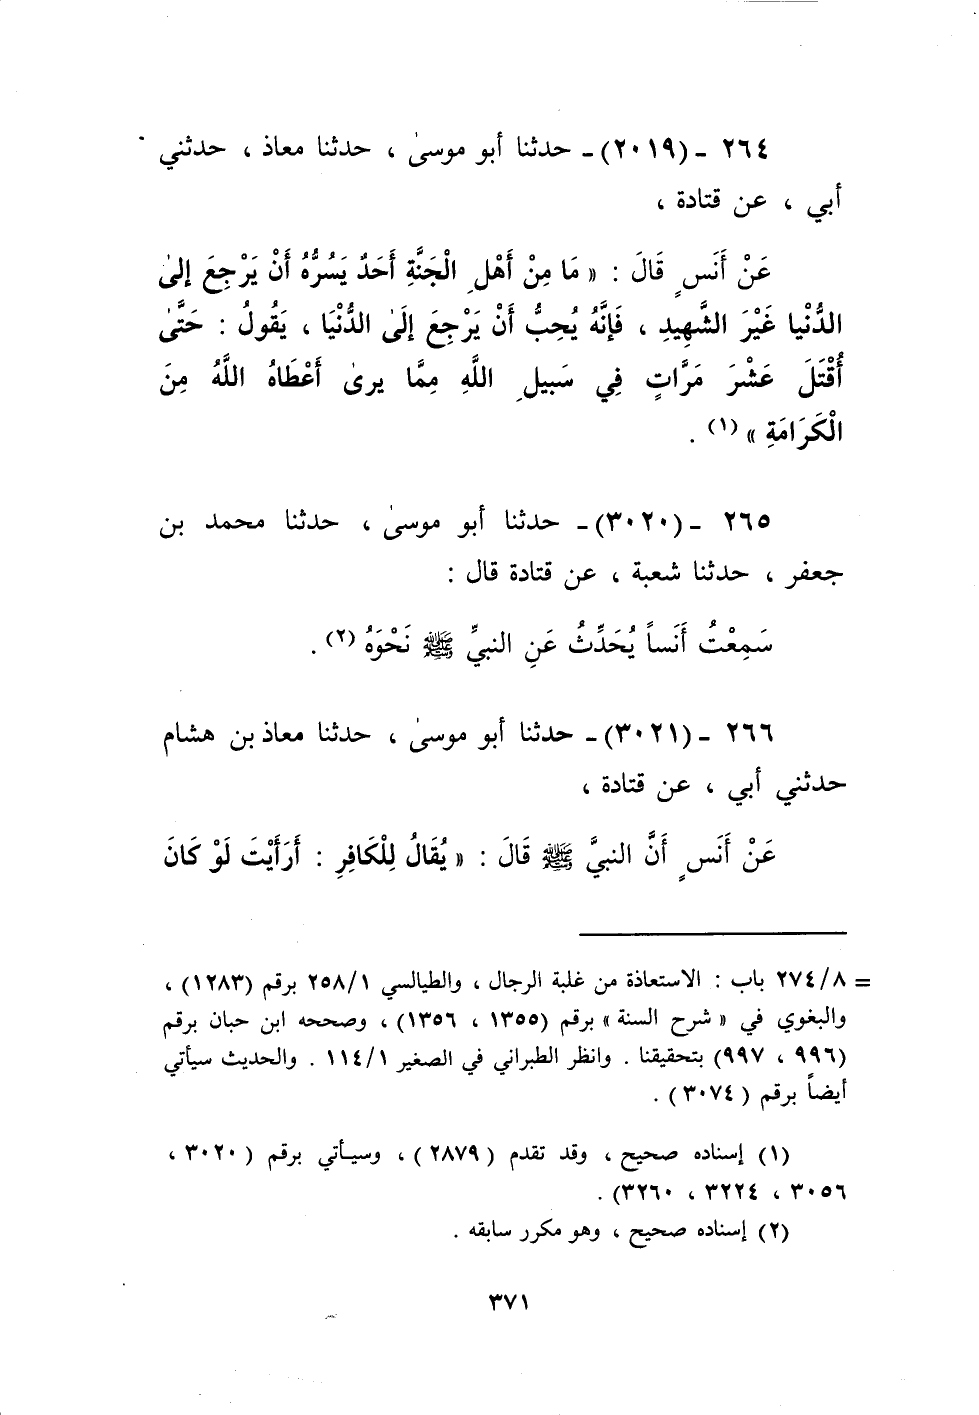 ٢٦٤ ـ (٢٠١٩) ـ حدثنا أبو موسىٰ ، حدثنا معاذ ، حدثني
أبي ، عن قتادة ،
عَنْ أَنَسٍ قَالَ : « مَا مِنْ أَهْلِ الْجَنَّةِ أَحَدٌ يَسُرُّهُ أَنْ يَرْجِعَ إلىٰ
الدُّنْيا غَيْرَ الشَّهِيدِ ، فَإِنَّهُ يُحِبُّ أَنْ يَرْجِعَ إلَىٰ الدُّنْيَا ، يَقُولُ : حَتَّىٰ
أُقْتَلَ عَشْرَ مَرَّاتٍ فِي سَبِيلِ اللَّهِ مِمَّا يرىٰ أَعْطَاهُ اللَّهُ مِنَ
الْكَرَامَةِ » (١) .
٢٦٥ ـ (٣٠٢٠) ـ حدثنا أبو موسىٰ ، حدثنا محمد بن
جعفر ، حدثنا شعبة ، عن قتادة قال :
سَمِعْتُ أَنَساً يُحَدِّثُ عَنِ النبيِّ ﷺ نَحْوَهُ (٢) .
٢٦٦ ـ (٣٠٢١) ـ حدثنا أبو موسىٰ ، حدثنا معاذ بن هشام
حدثني أبي ، عن قتادة ،
عَنْ أَنَسٍ أَنَّ النبيَّ ﷺ قَالَ : « يُقَالُ لِلْكَافِرِ : أَرَأَيْتَ لَوْ كَانَ
= ٢٧٤/٨ باب : الاستعاذة من غلبة الرجال ، والطيالسي ٢٥٨/١ برقم (١٢٨٣) ،
والبغوي في « شرح السنة » برقم (١٣٥٥ ، ١٣٥٦) ، وصححه ابن حبان برقم
(٩٩٦ ، ٩٩٧) بتحقيقنا . وانظر الطبراني في الصغير ١١٤/١ . والحديث سيأتي
أيضاً برقم (٣٠٧٤) .
(١) إسناده صحيح ، وقد تقدم (٢٨٧٩) ، وسيأتي برقم (٣٠٢٠ ،
٣٠٥٦ ، ٣٢٢٤ ، ٣٢٦٠) .
(٢) إسناده صحيح ، وهو مكرر سابقه .
٣٧١